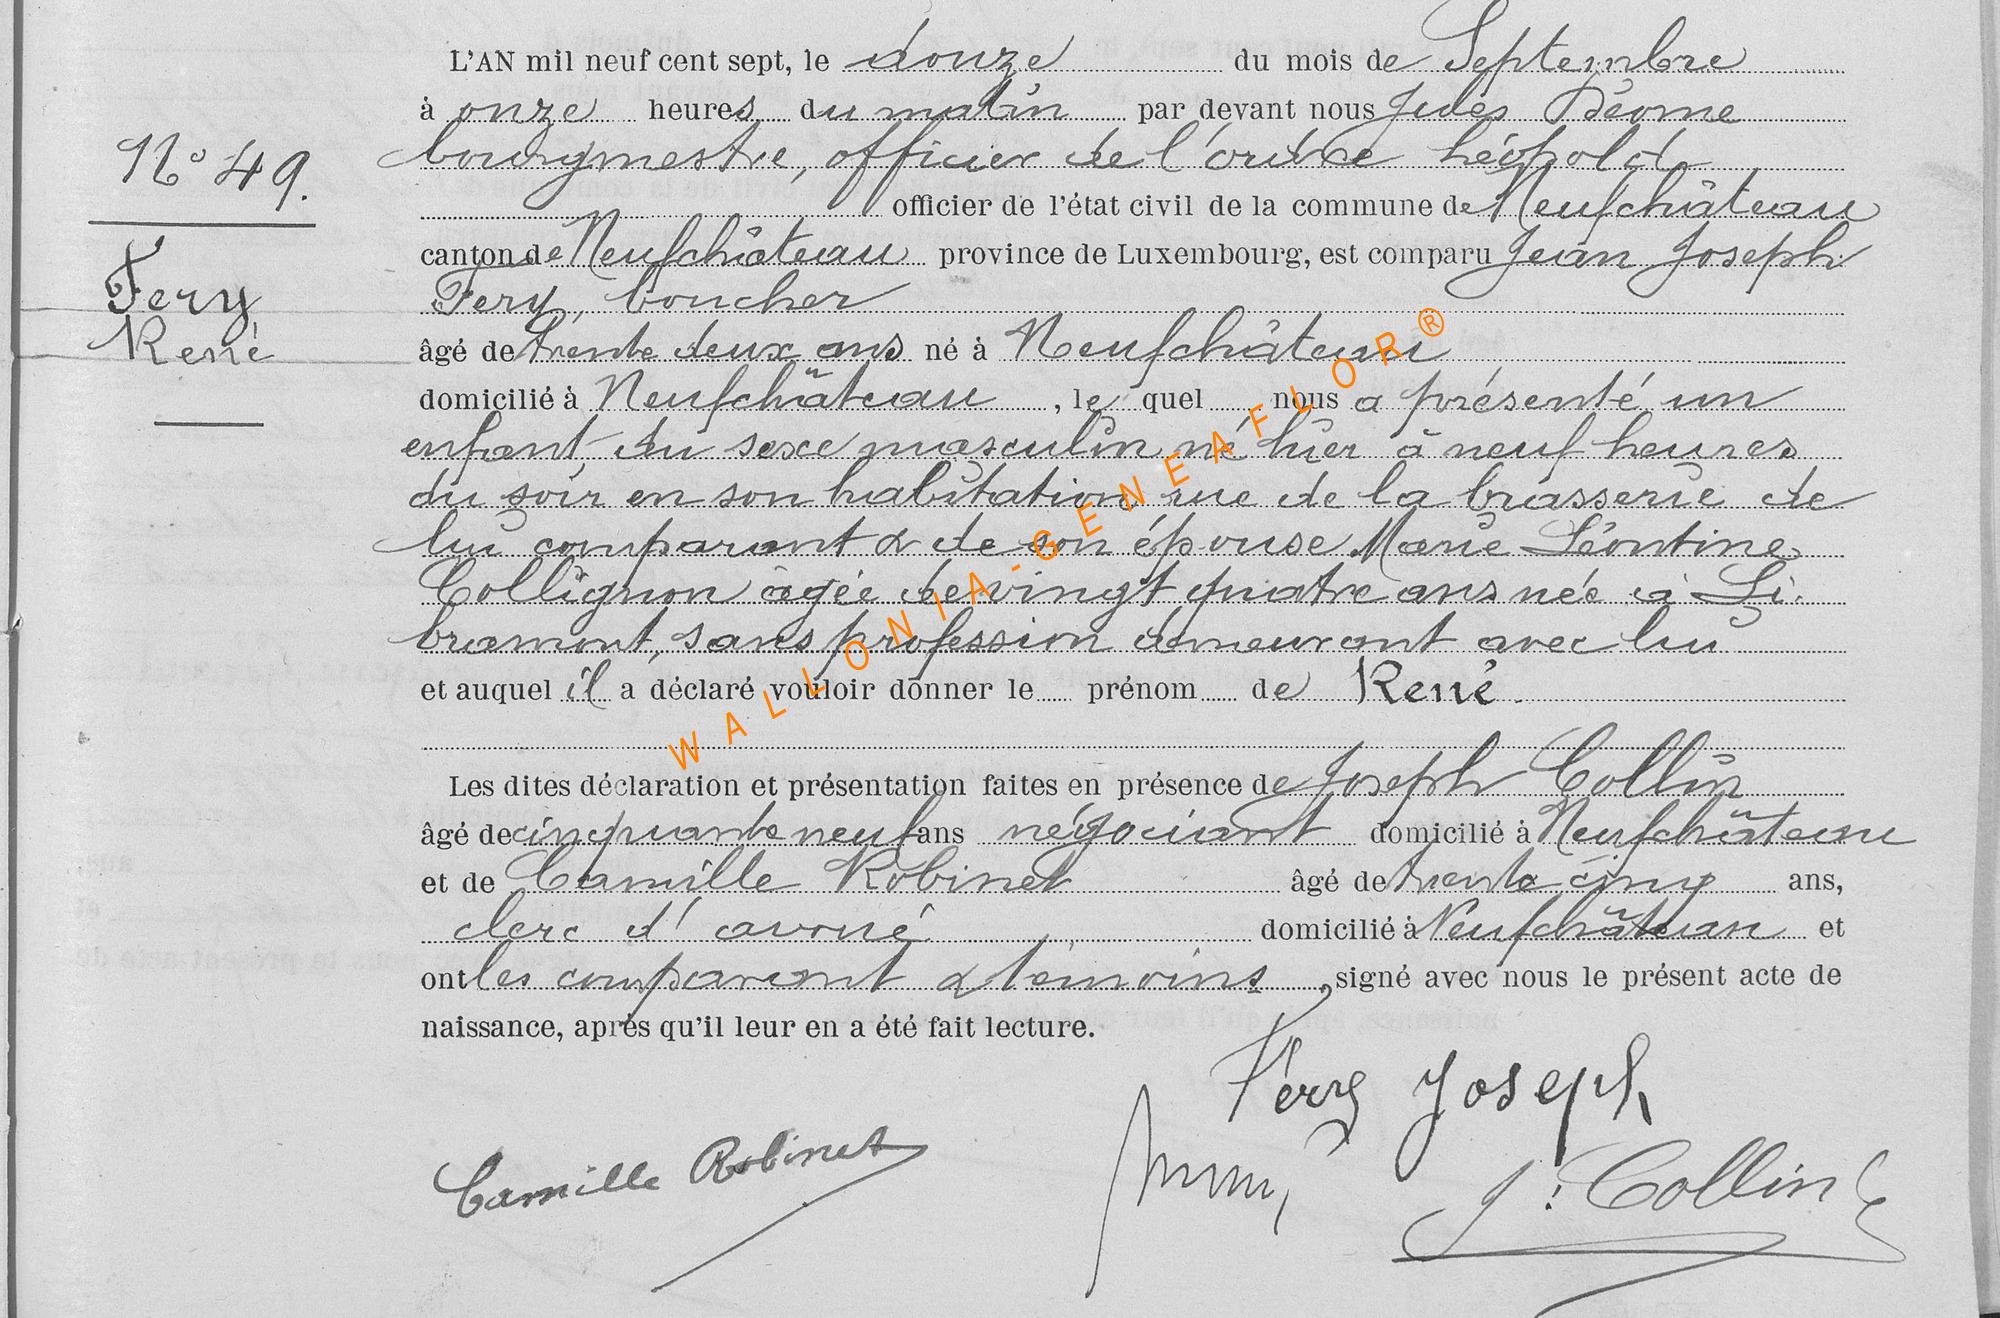 L'AN mil neuf cent sept, le douze du mois de Septembre
à onze heures du matin par devant nous Jules Déome
bourgmestre, officier de l'ordre Léopold
officier de l'état civil de la commune de Neufchâteau
N° 49.
canton de Neufchâteau province de Luxembourg, est comparu Jean Joseph
Fery, boucher
Fery
René
âgé de trente deux ans né à Neufchâteau
domicilié à Neufchâteau, le quel nous a présenté un
enfant du sexe masculin né hier à neuf heures
du soir en son habitation rue de la brasserie de
lui comparant & de son épouse Marie Léontine
Collignon âgée de vingt quatre ans née à Li-
bramont, sans profession demeurant avec lui
et auquel il a déclaré vouloir donner le prénom de René.
Les dites déclaration et présentation faites en présence de Joseph Collin
âgé de cinquante neuf ans négociant domicilié à Neufchâteau
et de Camille Robinet âgé de trente cinq ans,
clerc d'avoué domicilié à Neufchâteau et
ont les comparant & témoins, signé avec nous le présent acte de
naissance, après qu'il leur en a été fait lecture.
Féry Joseph
Camille Robinet
J. Collin
WALLONIA-GENEAFLOR®